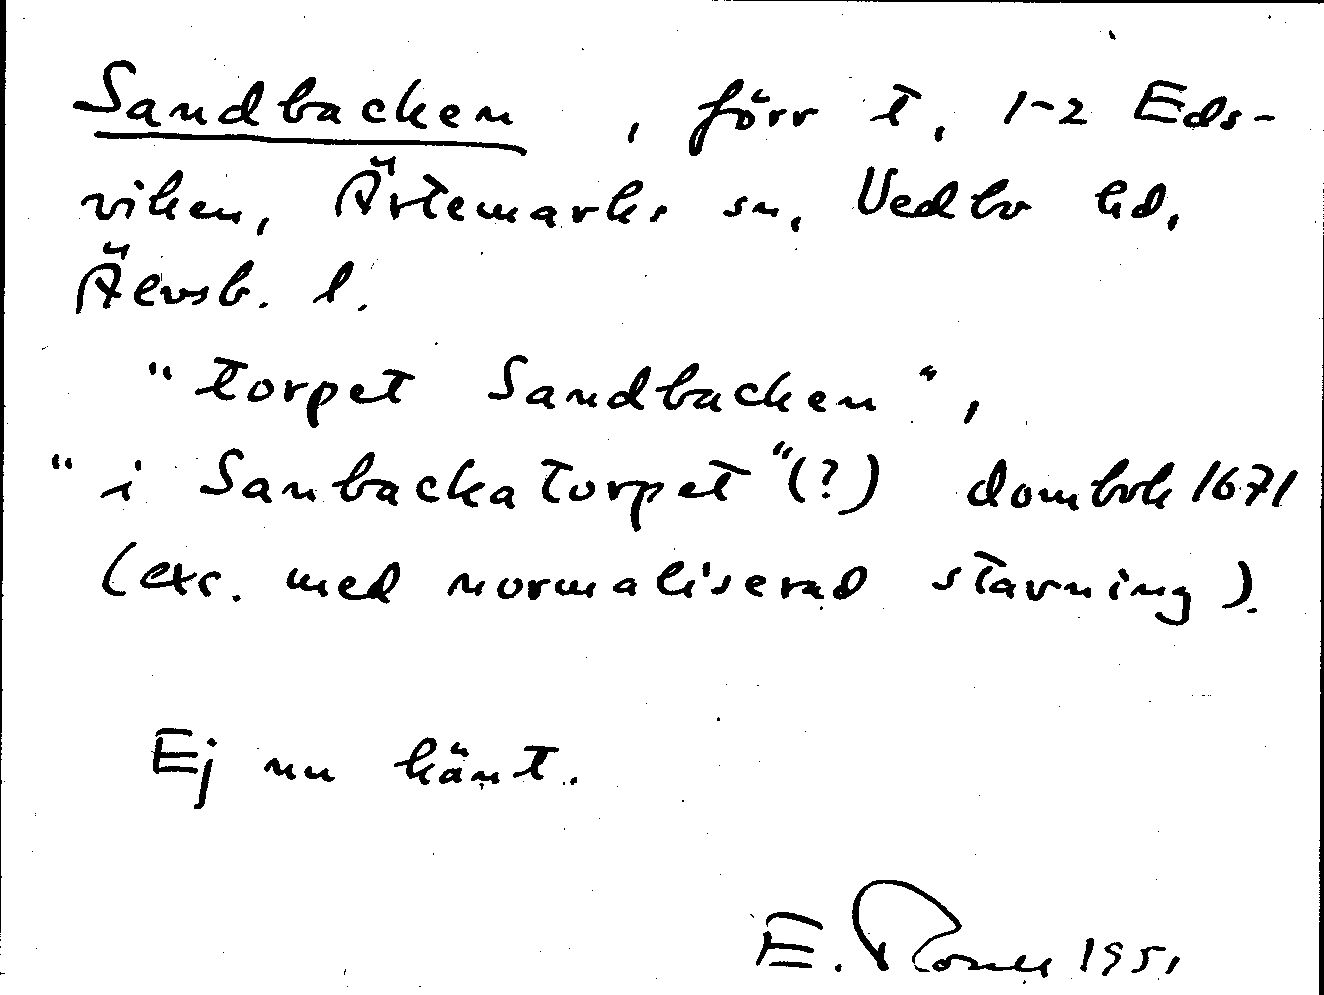 Sandbacken, förr t. 1-2 Eds-
viken, Ärtemarks sn, Vedbo hd,
Älvsb. l.
"torpet Sandbacken",
"i Sanbackatorpet"(?) dombok 1671
(exc. med normaliserad stavning).
Ej nu känt.
E. 1951